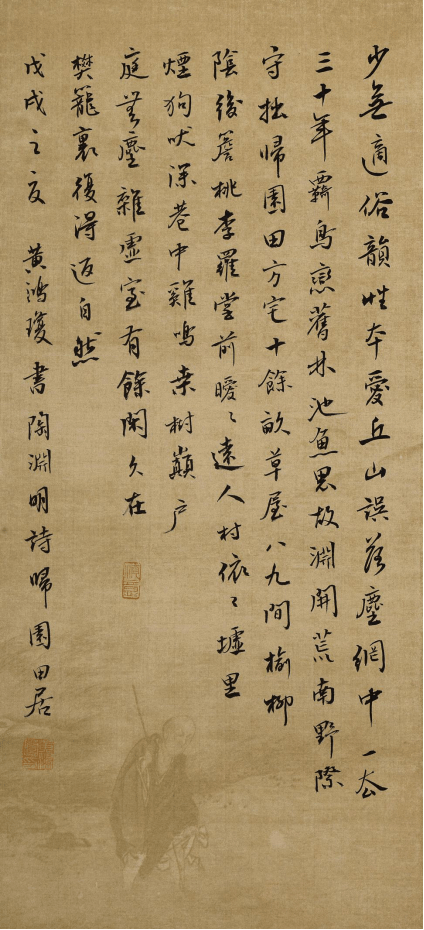 少無適俗韻性本愛丘山誤落塵網中一去
三十年羈鳥戀舊林池魚思故淵開荒南野際
守拙歸園田方宅十餘畝草屋八九間榆柳
陰後簷桃李羅堂前曖〻遠人村依〻墟里
煙狗吠深巷中雞鳴桑樹巔戶
庭無塵雜虛室有餘閑久在
樊籠裏復得返自然
戊戌之夏 黃鴻瓊書陶淵明詩歸園田居